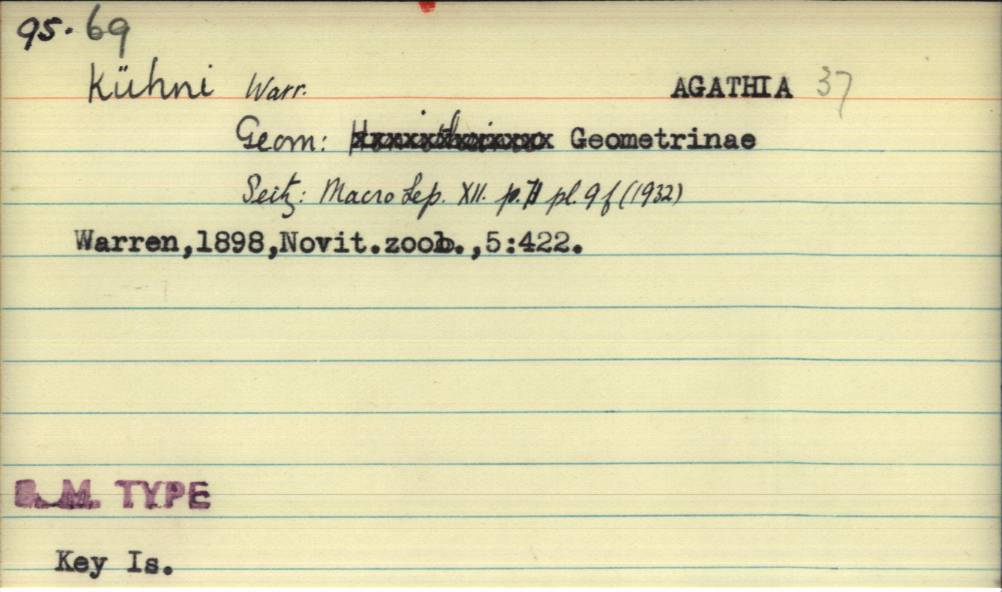 95.69
kühni Warr. AGATHIA 37
Geom: Geometrinae
Seitz: Macro Lep. XII. p. pl. 9 f (1932)
Warren,1898,Novit.zool.,5:422.
B.M. TYPE
Key Is.